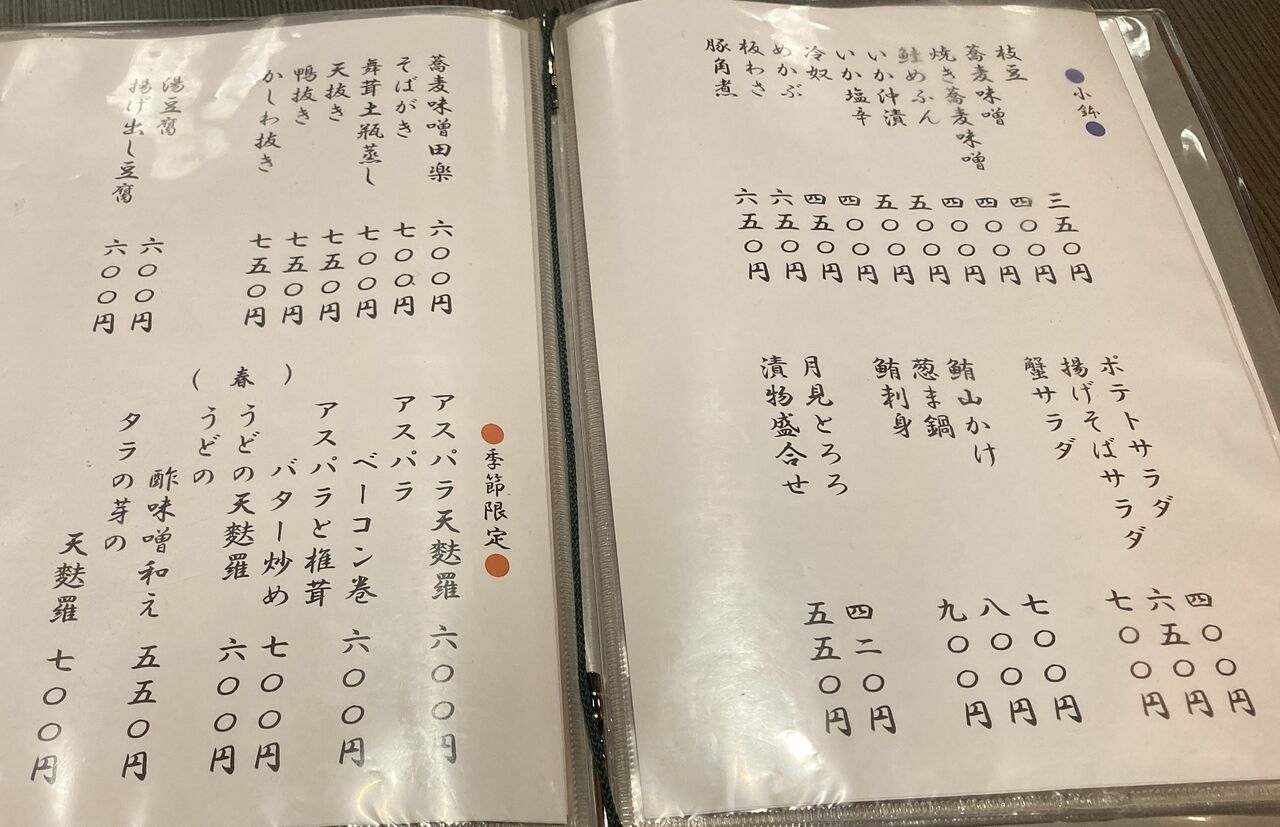 ●小鉢●
枝豆 三五〇円
蕎麦味噌 四〇〇円
焼き蕎麦味噌 四〇〇円
鮭めふん 四〇〇円
いか沖漬 五〇〇円
いか塩辛 五〇〇円
冷奴 四〇〇円
めかぶ 四五〇円
板わさ 六五〇円
豚角煮 六五〇円
ポテトサラダ 四〇〇円
揚げそばサラダ 六五〇円
蟹サラダ 七〇〇円
鮪山かけ 七〇〇円
葱ま鍋 八〇〇円
鮪刺身 九〇〇円
月見とろろ 四二〇円
漬物盛合せ 五五〇円
蕎麦味噌田楽 六〇〇円
そばがき 七〇〇円
舞茸土瓶蒸し 七〇〇円
天抜き 七五〇円
鴨抜き 七五〇円
かしわ抜き 七五〇円
湯豆腐 六〇〇円
揚げ出し豆腐 六〇〇円
●季節限定●
(春)
アスパラ天麩羅 六〇〇円
アスパラ
ベーコン巻 六〇〇円
アスパラと椎茸
バター炒め 七〇〇円
うどの天麩羅 六〇〇円
うどの
酢味噌和え 五五〇円
タラの芽の
天麩羅 七〇〇円